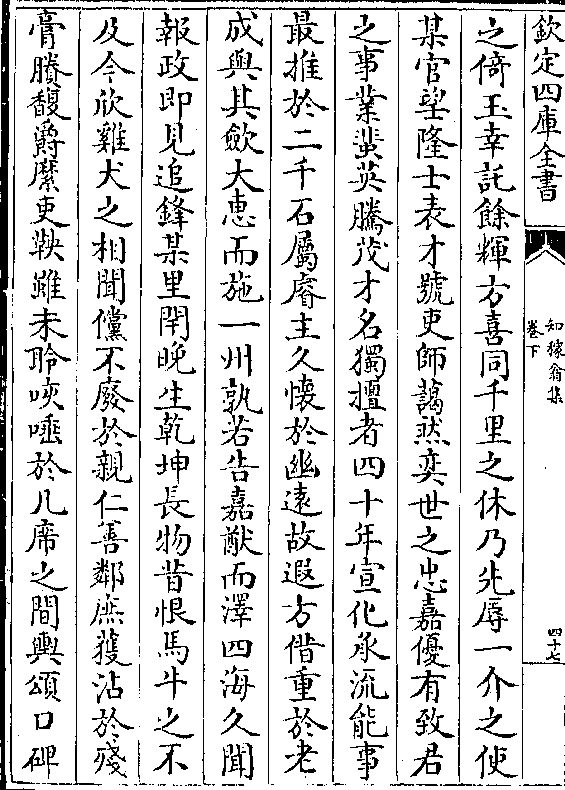 欽定四庫全書
知稼翁集
卷下
四十七
之倚玉幸託餘輝方喜同千里之休乃先辱一介之使
某官望隆士表才號吏師藹然奕世之忠嘉優有致君
之事業蜚英騰茂才名獨擅者四十年宣化承流能事
最推於二千石屬睿主久懷於幽遠故遐方借重於老
成與其斂大惠而施一州孰若告嘉猷而澤四海久聞
報政即見追鋒某里閈晚生乾坤長物昔恨馬牛之不
及今欣雞犬之相聞儻不廢於親仁善鄰庶獲沾於殘
膏賸馥爵縻吏鞅雖未聆咳唾於几席之間輿頌口碑